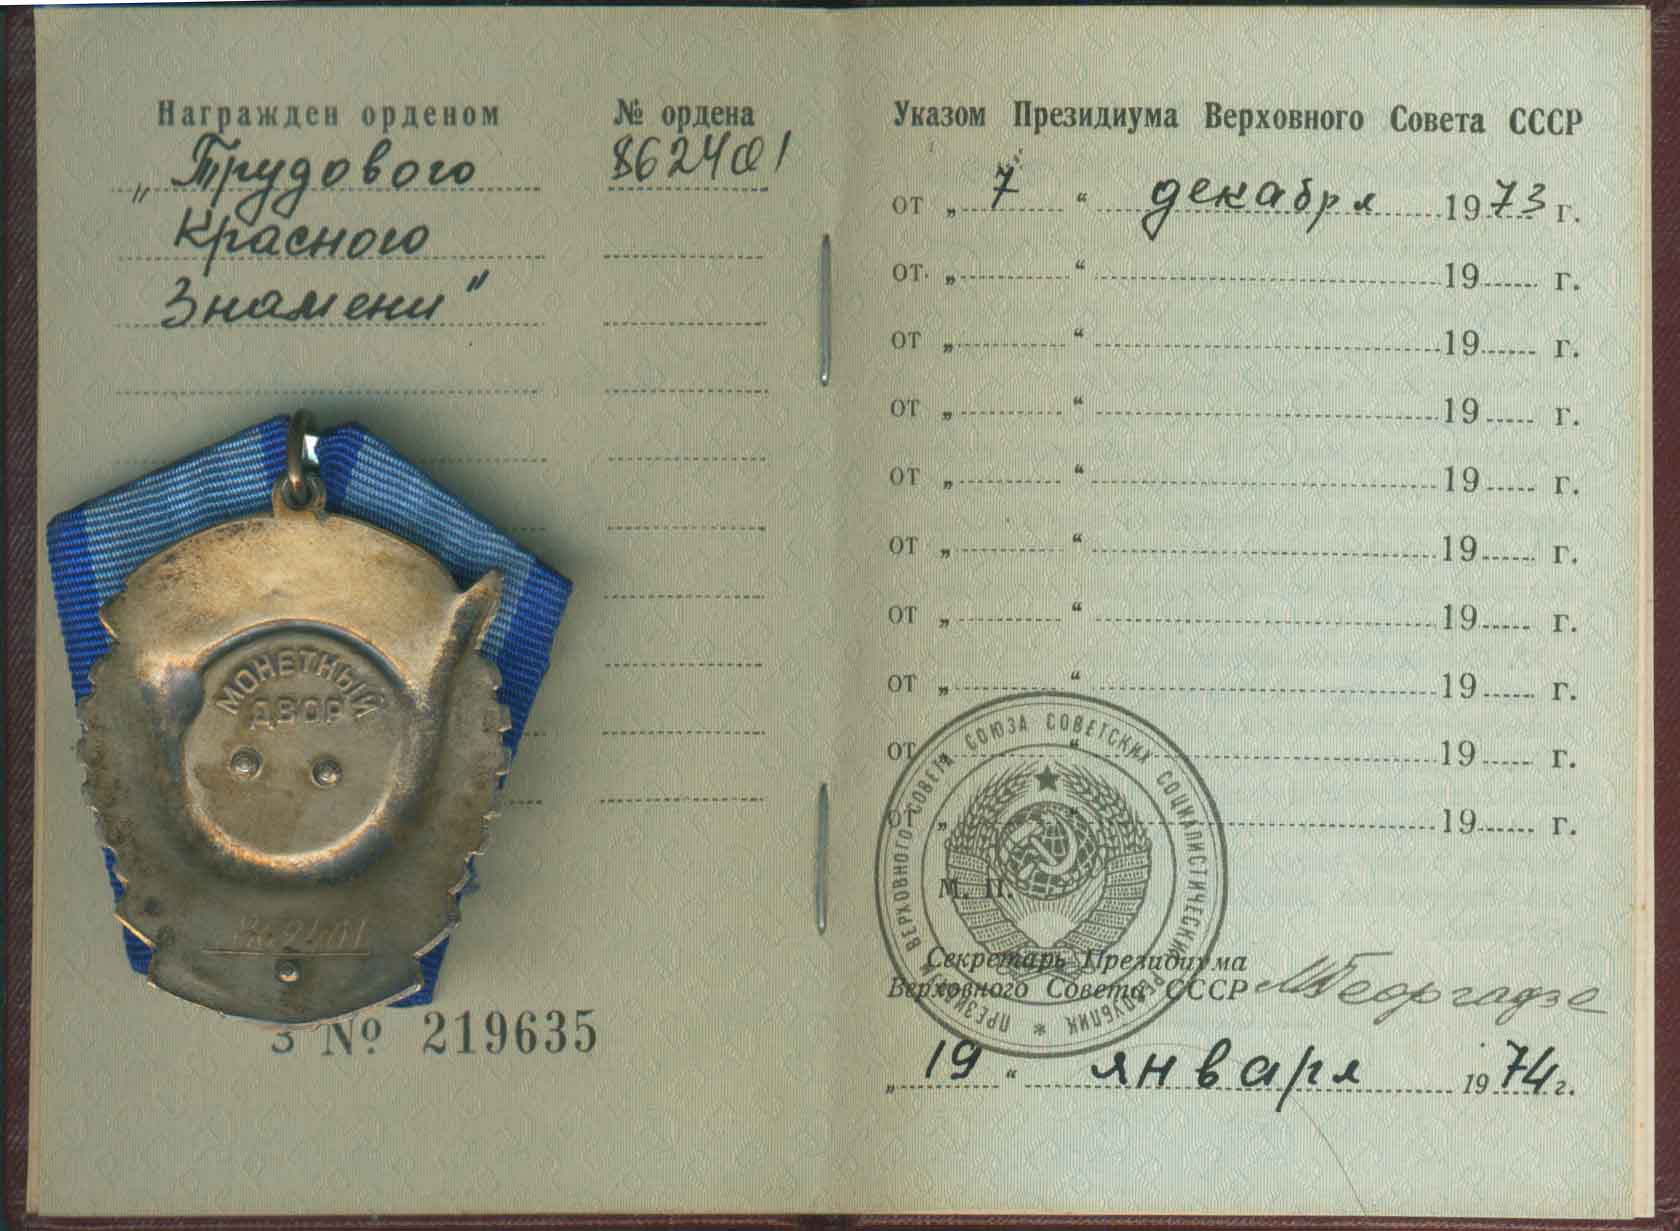 Награжден орденом
№ ордена
„Трудового
862401
Красного
Знамени"
МОНЕТНЫЙ
ДВОР
862401
З № 219635
Указом Президиума Верховного Совета СССР
от „7“ декабря 1973 г.
от „ “ 19 г.
от „ “ 19 г.
от „ “ 19 г.
от „ “ 19 г.
от „ “ 19 г.
от „ “ 19 г.
от „ “ 19 г.
от „ “ 19 г.
от „ “ 19 г.
ПРЕЗИДИУМ ВЕРХОВНОГО СОВЕТА СОЮЗА СОВЕТСКИХ СОЦИАЛИСТИЧЕСКИХ РЕСПУБЛИК *
М. П.
Секретарь Президиума
Верховного Совета СССР МГеоргадзе
„19“ января 1974 г.